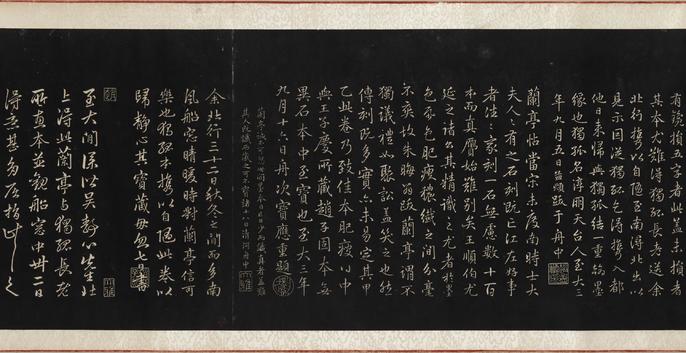 損五字者此蓋未損者
其本尤難得獨孤長老送余
北行攜以自隨至南潯北出以
見示因從獨孤乞得攜入都
他日來歸與獨孤結一重翰墨
緣也獨孤名淳朋天台人至大三
年九月五日孟頫跋于舟中
蘭亭帖當宋未度南時士大
夫人人有之石刻既亡江左好事
者往往家刻一石無慮數十百
本而真贗始難別矣王順伯尤
延之諸公其精識之尤者於墨
色紙色肥瘦穠纖之間分毫
不爽故朱晦翁跋蘭亭謂不
獨議禮如聚訟蓋笑之也然
傳刻既多實亦未易定其甲
乙此卷乃致佳本肥瘦得中
與王子慶所藏趙子固本無
異石本中至寶也至大三年
九月十六日舟次寶應重題
蘭亭誠不可忽世間墨本日亡日少而識真者蓋難
其人既識而藏之可不寶諸十八日清河舟中
余北行三十二日秋冬之間而多南
風船窗晴暖時對蘭亭信可
樂也獨孤本攜以自隨此卷以
歸靜心其寶藏毋忽書
至大間僕以吳靜心先生
上得此蘭亭與獨孤長老
本並觀船窗中卅一日
得意甚多